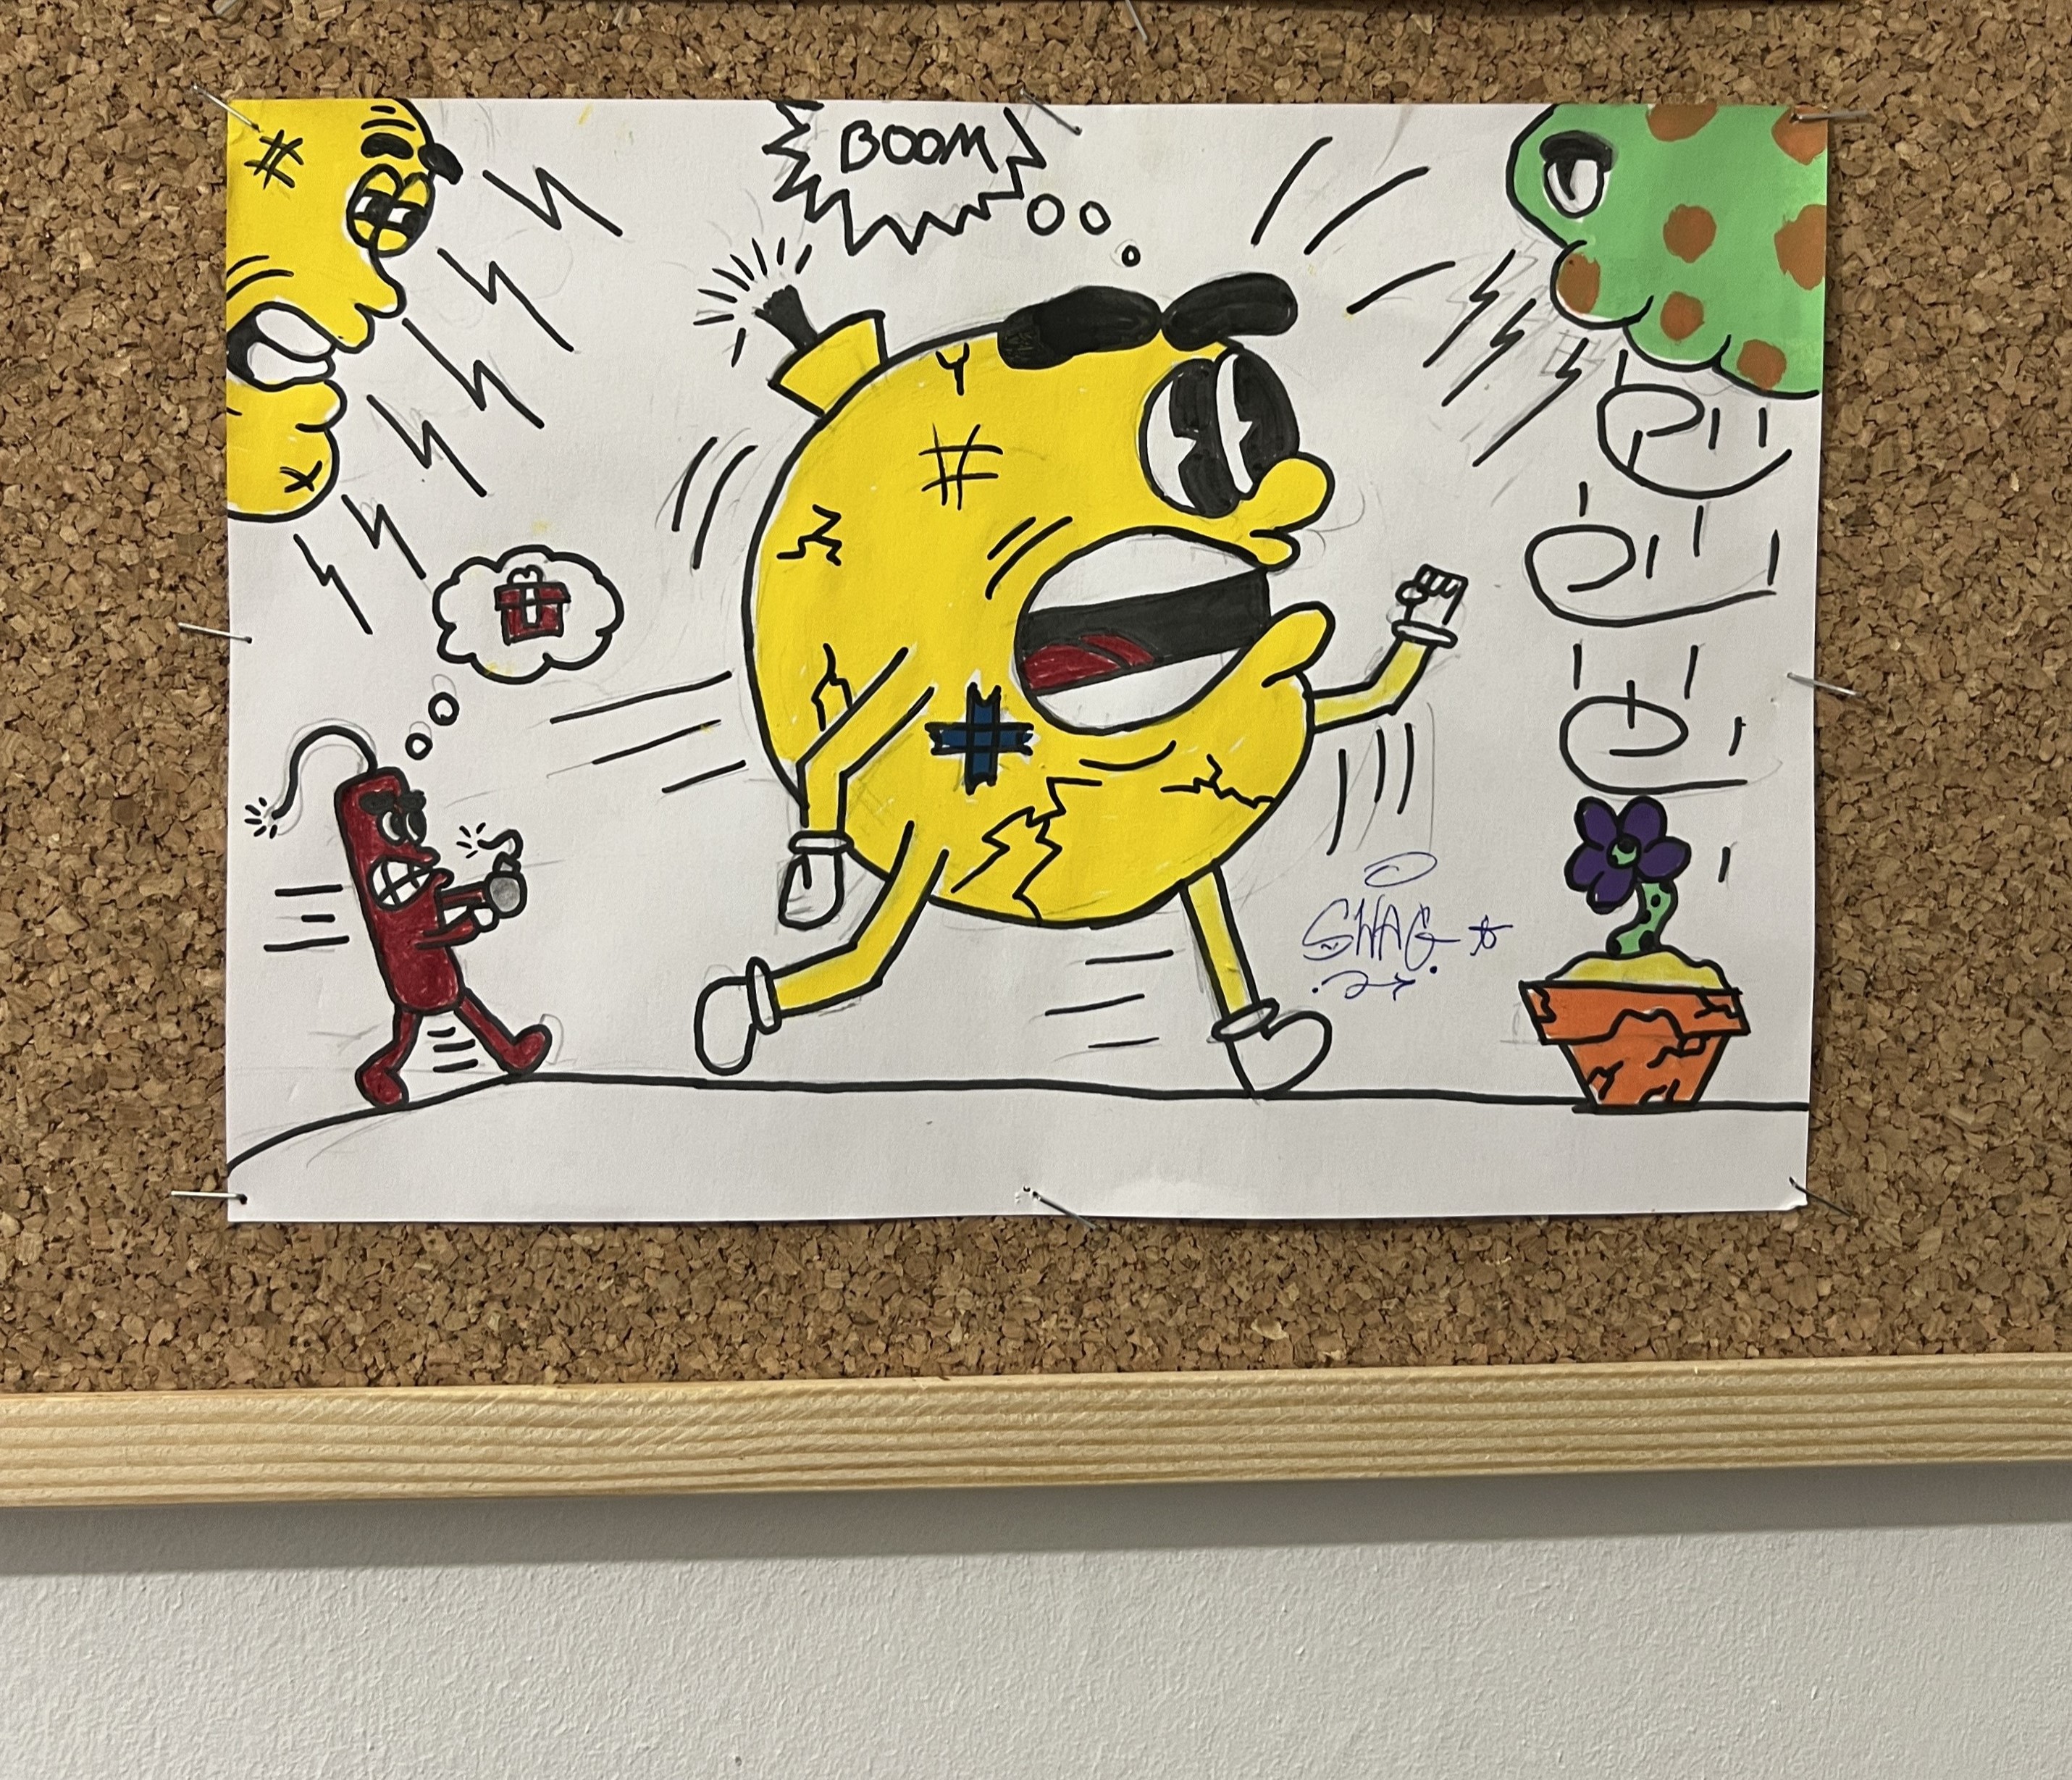 BOOM
SWAG